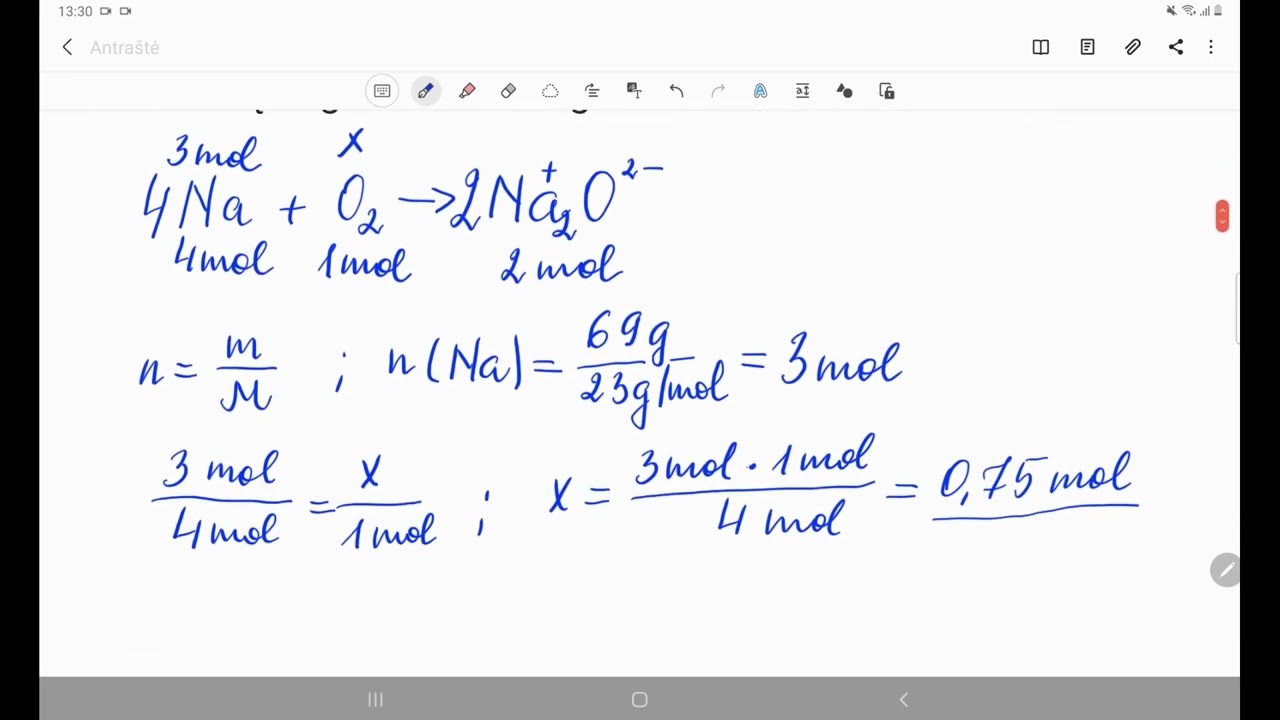 13:30
Antraštė
3 mol x
4Na + O₂ → 2Na⁺₂O²⁻
4 mol 1 mol 2 mol
n = m/M ; n(Na) = 69g/23g/mol = 3 mol
3 mol/4 mol = x/1 mol ; x = 3 mol · 1 mol/4 mol = 0,75 mol